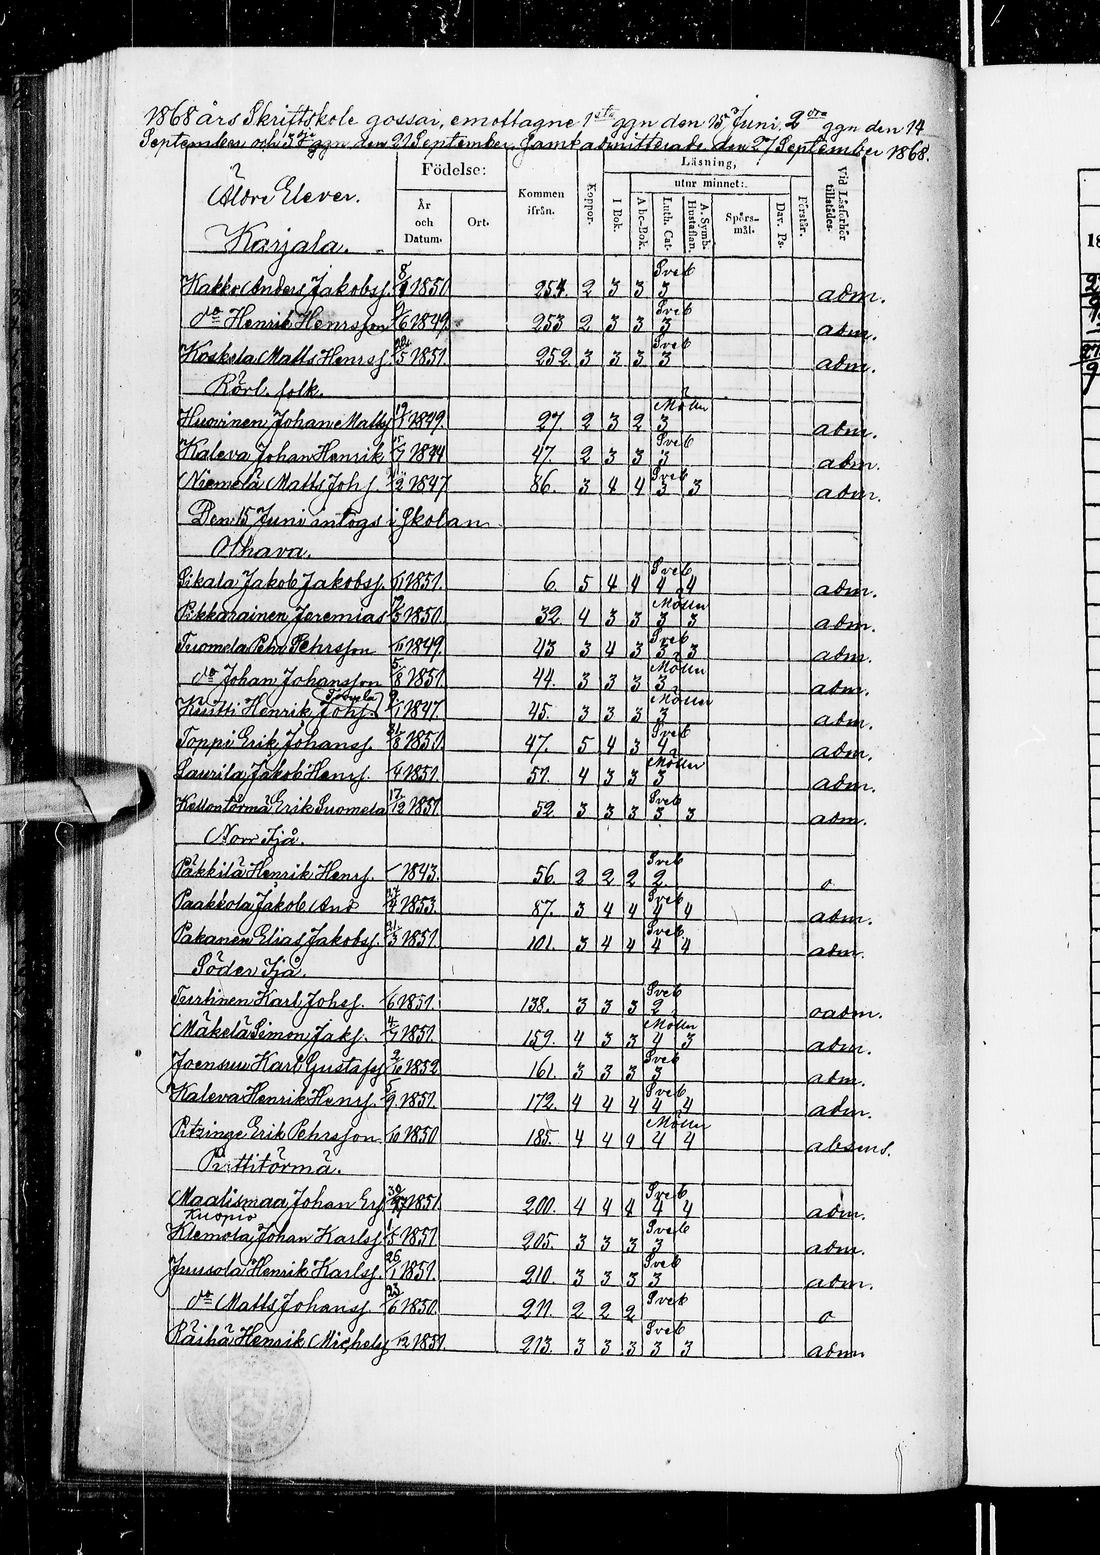 1868 års Skriftskole gossar, emottagne 1sta ggn den 15 Juni, 2dra ggn den 14
September och 3dje ggn den 21 September, samt admitterade den 27 September 1868.
Äldre Elever.
Födelse:
År och Datum.
Ort.
Kommen ifrån.
Koppor.
Läsning,
I Bok.
utur minnet:
Abc-Bok.
Luth. Cat.
A. Symb. Hustaflan.
Spörs-mål.
Dav. Ps.
Förstår.
Vid Läsförhör tillstädes.
Karjala.
Kakko Anders Jakobss. 1851 254. 2 3 3 Sveb 3 adm.
do Henrik Henrsson 9/6 1849. 253 2 3 3 Sveb 3 adm.
Koskela Matts Henrss. 1851 252. 3 3 3. Sveb 3 adm.
Rörl. folk.
Huovinen Johan Matts 1849. 27. 2 3 2 Möller 3 adm.
Kaleva Johan Henrik 1844 47. 2 3 3 Sveb 3 adm.
Niemelä Matts Johs. 1847 86. 3 4 4 Sveb 3 3 adm.
Den 15 Juni intogs i Skolan
Olhava.
Sikala Jakob Jakobss. 1851. 6. 5 4 4 Sveb 4 4 adm.
Pikkarainen Jeremias 1850. 32. 4 3 3 Möller 3 3 adm.
Tuomela Pehr Pehrsson 1849. 43 3 4 3 Sveb 3 3 adm.
do Johan Johansson 5/8 1851 44. 3 3 3 Möller 3 adm.
Tuomela
Kuitti Henrik Johs. 1847. 45. 3 3 3 Möller 3 adm.
Toppi Erik Johanss. 1850. 47. 5 4 3 Sveb 4 adm.
Laurila Jakob Henrs. /4 1851. 51. 4 3 3 Möller 3 adm.
Kellontörmä Erik Suomela 17/12 1851. 52. 3 3 3 Sveb 3 3 adm.
Norr Ijå.
Päkkilä Henrik Henrs. / 1843. 56. 2 2 2 Sveb 2. o
Paakkola Jakob And 1853. 87. 3 4 4 Sveb 4 4 adm.
Pakanen Elias Jakobss. 21/3 1851. 101. 3 4 4 Sveb 4 4 adm.
Söder Ijå.
Turtinen Karl Johss. /6 1851. 138. 3 3 3 Sveb 2. oadm.
Mäkelä Simon Jaks. 1851. 159. 4 3 3 Möller 4 3 adm.
Joensuu Karl Gustafs 1852 161. 3 3 3 Sveb 3 adm.
Kaleva Henrik Henrs. 5/9 1851. 172. 4 4 4 Sveb 4 4 adm.
Pitzinge Erik Pehrsson /10 1850 185. 4 4 4 Möller 4 4 absens.
Purttitörmä.
Maalismaa Johan Ers. 1851. 200. 4 4 4 Sveb 4 4 adm.
Kuopio
Klemola Johan Karls. 1/5 1851. 205. 3 3 3 Sveb 3 adm.
Juusola Henrik Karls. 26/1 1851. 210. 3 3 3 Sveb 3 adm.
do Matts Johanss 23/6 1850. 211. 2 2 2 Sveb o
Räihä Henrik Michels /12 1851 213. 3 3 3 Sveb 3 3 adm.